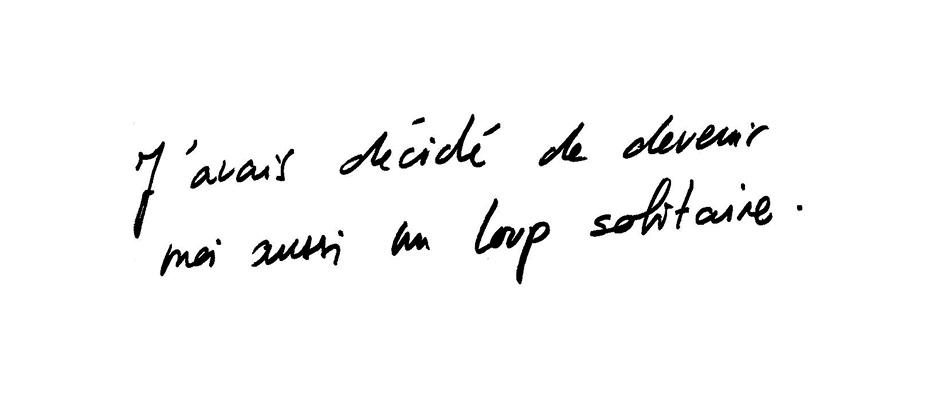 J'avais décidé de devenir
moi aussi un loup solitaire.